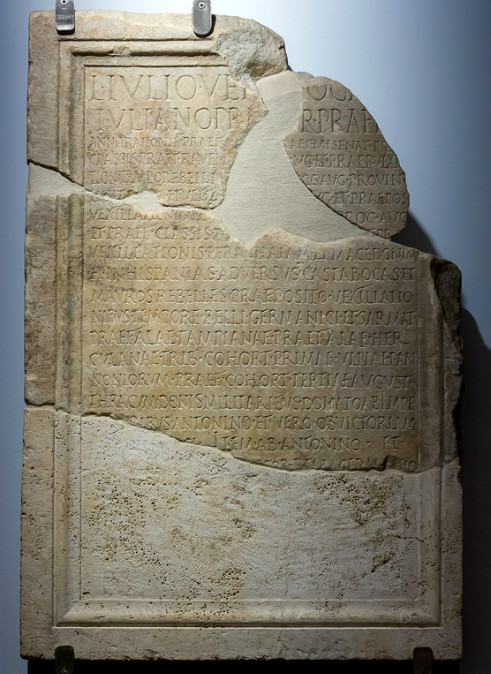 L·IVLIO·VE OGRA
IVLIANO PR R·PRAEF
PRAEF MISENAT·PR
CLASSIS·PRAET·RAVE AVG·ET·PRAEP·VEXI
TION·TEMPORE·BELLI AVG·PROVIN
ET·PRAEPOS
VEXILLATION PROC·AVG
ET·PRAEF·CLASSIS
VEXILLATIONIS·PER·ACHAIAM·ET·MACEDONIAM
ET·IN·HISPANIAS·ADVERSVS·CASTABOCAS·ET
MAVROS·REBELLES·PRAEPOSITO·VEXILLATIO
NIBVS·TEMPORE·BELLI·GERMANICI·ET·SARMAT
PRAEF·ALAE·TAMPIANAE·PRAEF·ALAE·HER
CVLANAE·TRIB·COHORT·PRIMAE·VLPIAE·PAN
NONIORVM·PRAEF·COHORT·TERTIAE·AVGVST
THRACVM·DONIS·MILITARIBVS·DONATO·AB·IMPE
BVS·ANTONINO·ET·VERO·OB·VICTORIAM
ITEM·AB·ANTONINO·ET